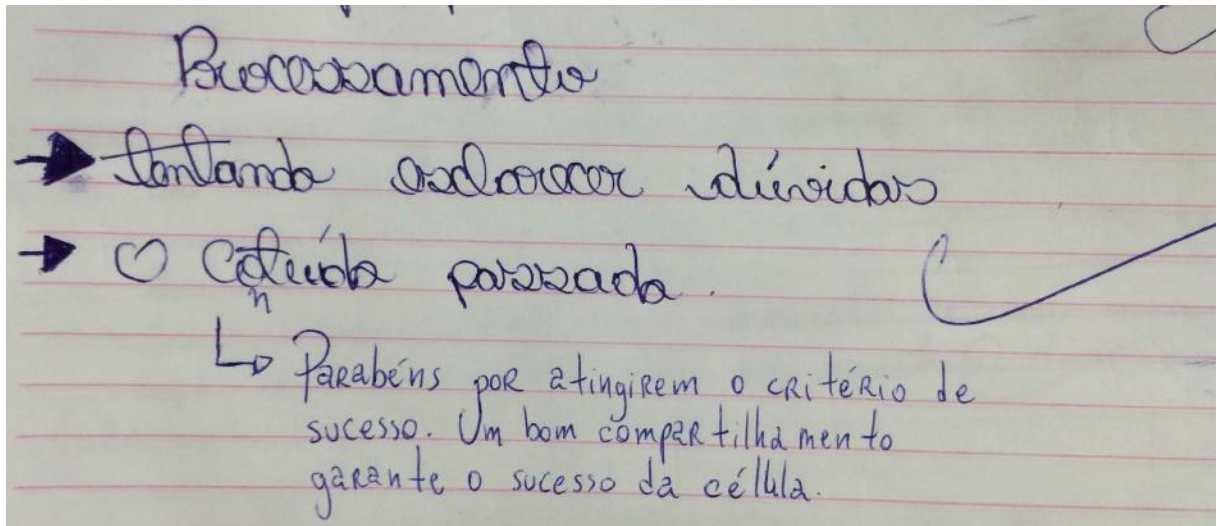 Processamento
tentando esclarecer dúvidas
O Conteúdo passado.
Parabéns por atingirem o critério de
sucesso. Um bom compartilhamento
garante o sucesso da célula.